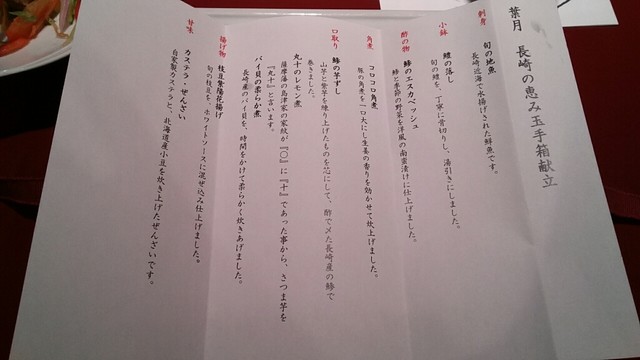 葉月　長崎の恵み玉手箱献立
刺身
旬の地魚
長崎近海で水揚げされた鮮魚です。
小鉢
鱧の落し
旬の鱧を、丁寧に骨切りし、湯引きにしました。
酢の物
鯵のエスカベッシュ
鯵と季節の野菜を洋風の南蛮漬けに仕上げました。
角煮
コロコロ角煮
豚の角煮を一口大にし生姜の香りを効かせて炊上げました。
口取り
鯵の芋ずし
山芋と紫芋を練り上げたものを芯にして、酢で〆た長崎産の鯵で
巻きました。
丸十のレモン煮
薩摩藩の島津家の家紋が『〇』に『十』であった事から、さつま芋を
『丸十』と言います。
バイ貝の柔らか煮
長崎産のバイ貝を、時間をかけて柔らかく炊きあげました。
揚げ物
枝豆紫陽花揚げ
旬の枝豆を、ホワイトソースに混ぜ込み仕上げました。
甘味
カステラ・ぜんざい
自家製カステラと、北海道産小豆を炊き上げたぜんざいです。